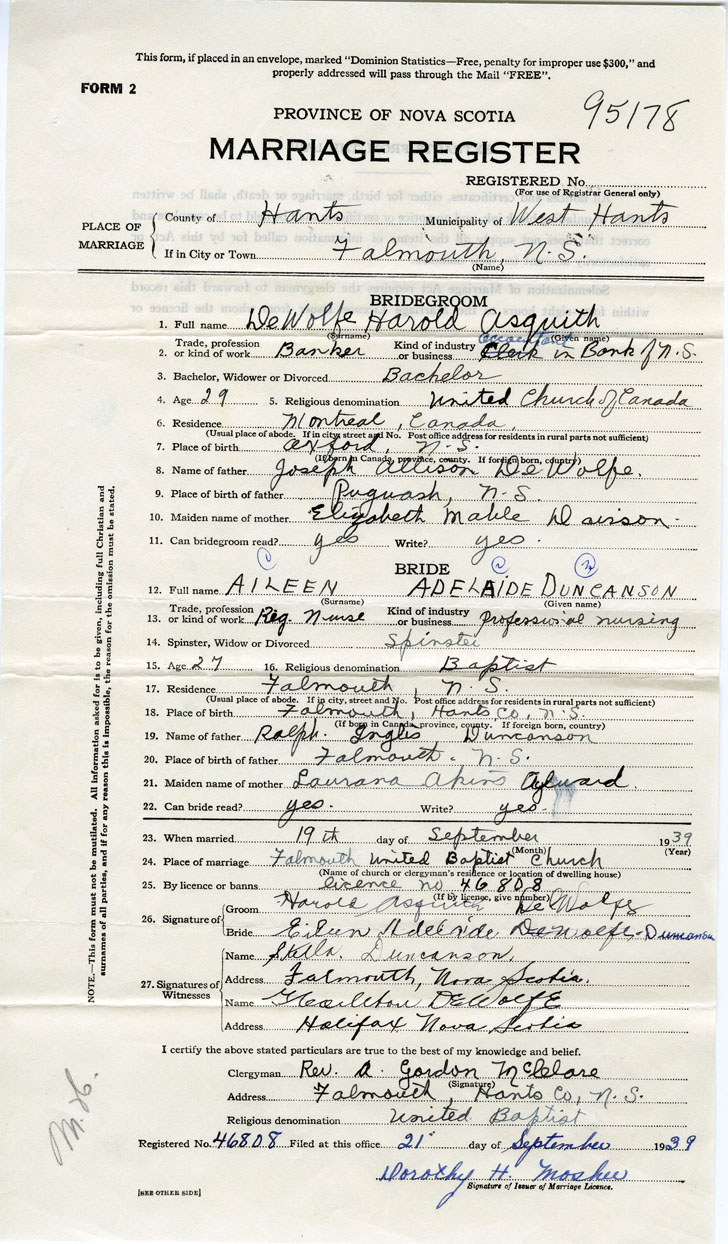 This form, if placed in an envelope, marked "Dominion Statistics—Free, penalty for improper use $300," and
properly addressed will pass through the Mail "FREE".
FORM 2
95178
PROVINCE OF NOVA SCOTIA
MARRIAGE REGISTER
REGISTERED No.
(For use of Registrar General only)
PLACE OF MARRIAGE
County of Hants Municipality of West Hants
If in City or Town Falmouth, N.S.
(Name)
BRIDEGROOM
1. Full name DeWolfe Harold Asquith
(Surname) (Given name)
2. Trade, profession or kind of work Banker Kind of industry or business Clerk in Bank of N.S.
3. Bachelor, Widower or Divorced Bachelor
4. Age 29 5. Religious denomination United Church of Canada
6. Residence Montreal, Canada.
(Usual place of abode. If in city, street and No. Post office address for residents in rural parts not sufficient)
7. Place of birth Oxford, N.S.
(If born in Canada, province, county. If foreign born, country)
8. Name of father Joseph Allison DeWolfe.
9. Place of birth of father Pugwash, N.S.
10. Maiden name of mother Elizabeth Mable
11. Can bridegroom read? yes Write? yes.
BRIDE
12. Full name AILEEN ADELAIDE DUNCANSON
(Surname) (Given name)
13. Trade, profession or kind of work Reg. Nurse Kind of industry or business professional nursing
14. Spinster, Widow or Divorced Spinster
15. Age 27 16. Religious denomination Baptist
17. Residence Falmouth, N.S.
(Usual place of abode. If in city, street and No. Post office address for residents in rural parts not sufficient)
18. Place of birth Falmouth, Hants Co, N.S.
(If born in Canada, province, county. If foreign born, country)
19. Name of father Ralph. Inglis Duncanson
20. Place of birth of father Falmouth. N.S.
21. Maiden name of mother Laurana Akins Aylward.
22. Can bride read? yes. Write? yes.
23. When married 19th day of September 1939
(Month) (Year)
24. Place of marriage Falmouth United Baptist Church
(Name of church or clergyman's residence or location of dwelling house)
25. By licence or banns licence no 46808
(If by licence, give number)
26. Signature of
Groom Harold Asquith DeWolfe
Bride Eileen Adelaide DeWolfe-Duncanson
27. Signatures of Witnesses
Name Stella Duncanson.
Address Falmouth, Nova Scotia.
Name DeWolfe
Address Halifax Nova Scotia
I certify the above stated particulars are true to the best of my knowledge and belief.
Clergyman Rev. A. Gordon McClare
(Signature)
Address Falmouth, Hants Co, N.S.
Religious denomination United Baptist
Registered No. 46808 Filed at this office 21 day of September 1939
Dorothy H. Mosher
Signature of Issuer of Marriage Licence.
[SEE OTHER SIDE]
NOTE.—This form must not be mutilated. All information asked for is to be given, including full Christian and
surnames of all parties, and if for any reason this is impossible, the reason for the omission must be stated.